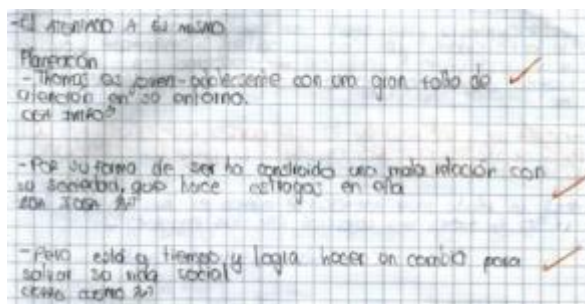 -El ATERIADO A EL MISMO
Planeación
- Thomas es joven-adolescente con una gran falta de
atención en su entorno.
- Por su forma de ser ha construido una mala relación con
su sociedad, que hace estragos en ella
- Pero está a tiempo y logra hacer un cambio para
salvar su vida social